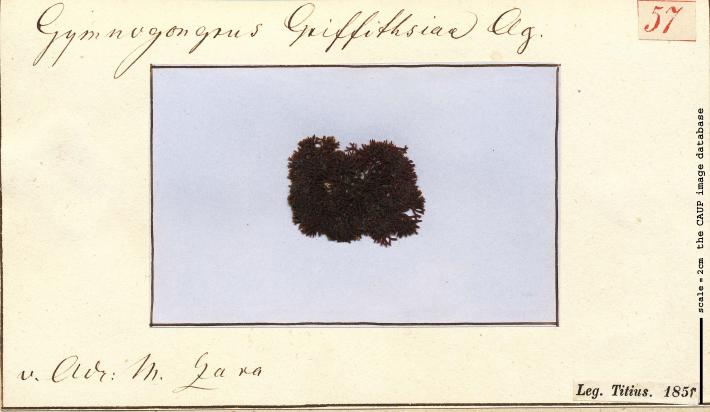 Gymnogongrus Griffithsiae Ag.
57
v. Adr: M. Zara
Leg. Titius. 185
scale = 2cm the CAUP image database